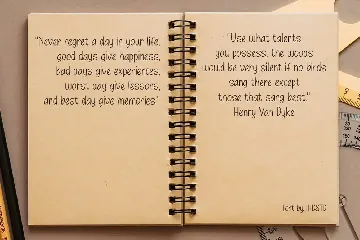 "Never regret a day in your life,
good days give happiness,
bad days give experiences,
worst day give lessons,
and best day give memories"
"Use what talents
you possess, the woods
would be very silent if no birds
sang there except
those that sang best."
Henry Van Dyke
Text by